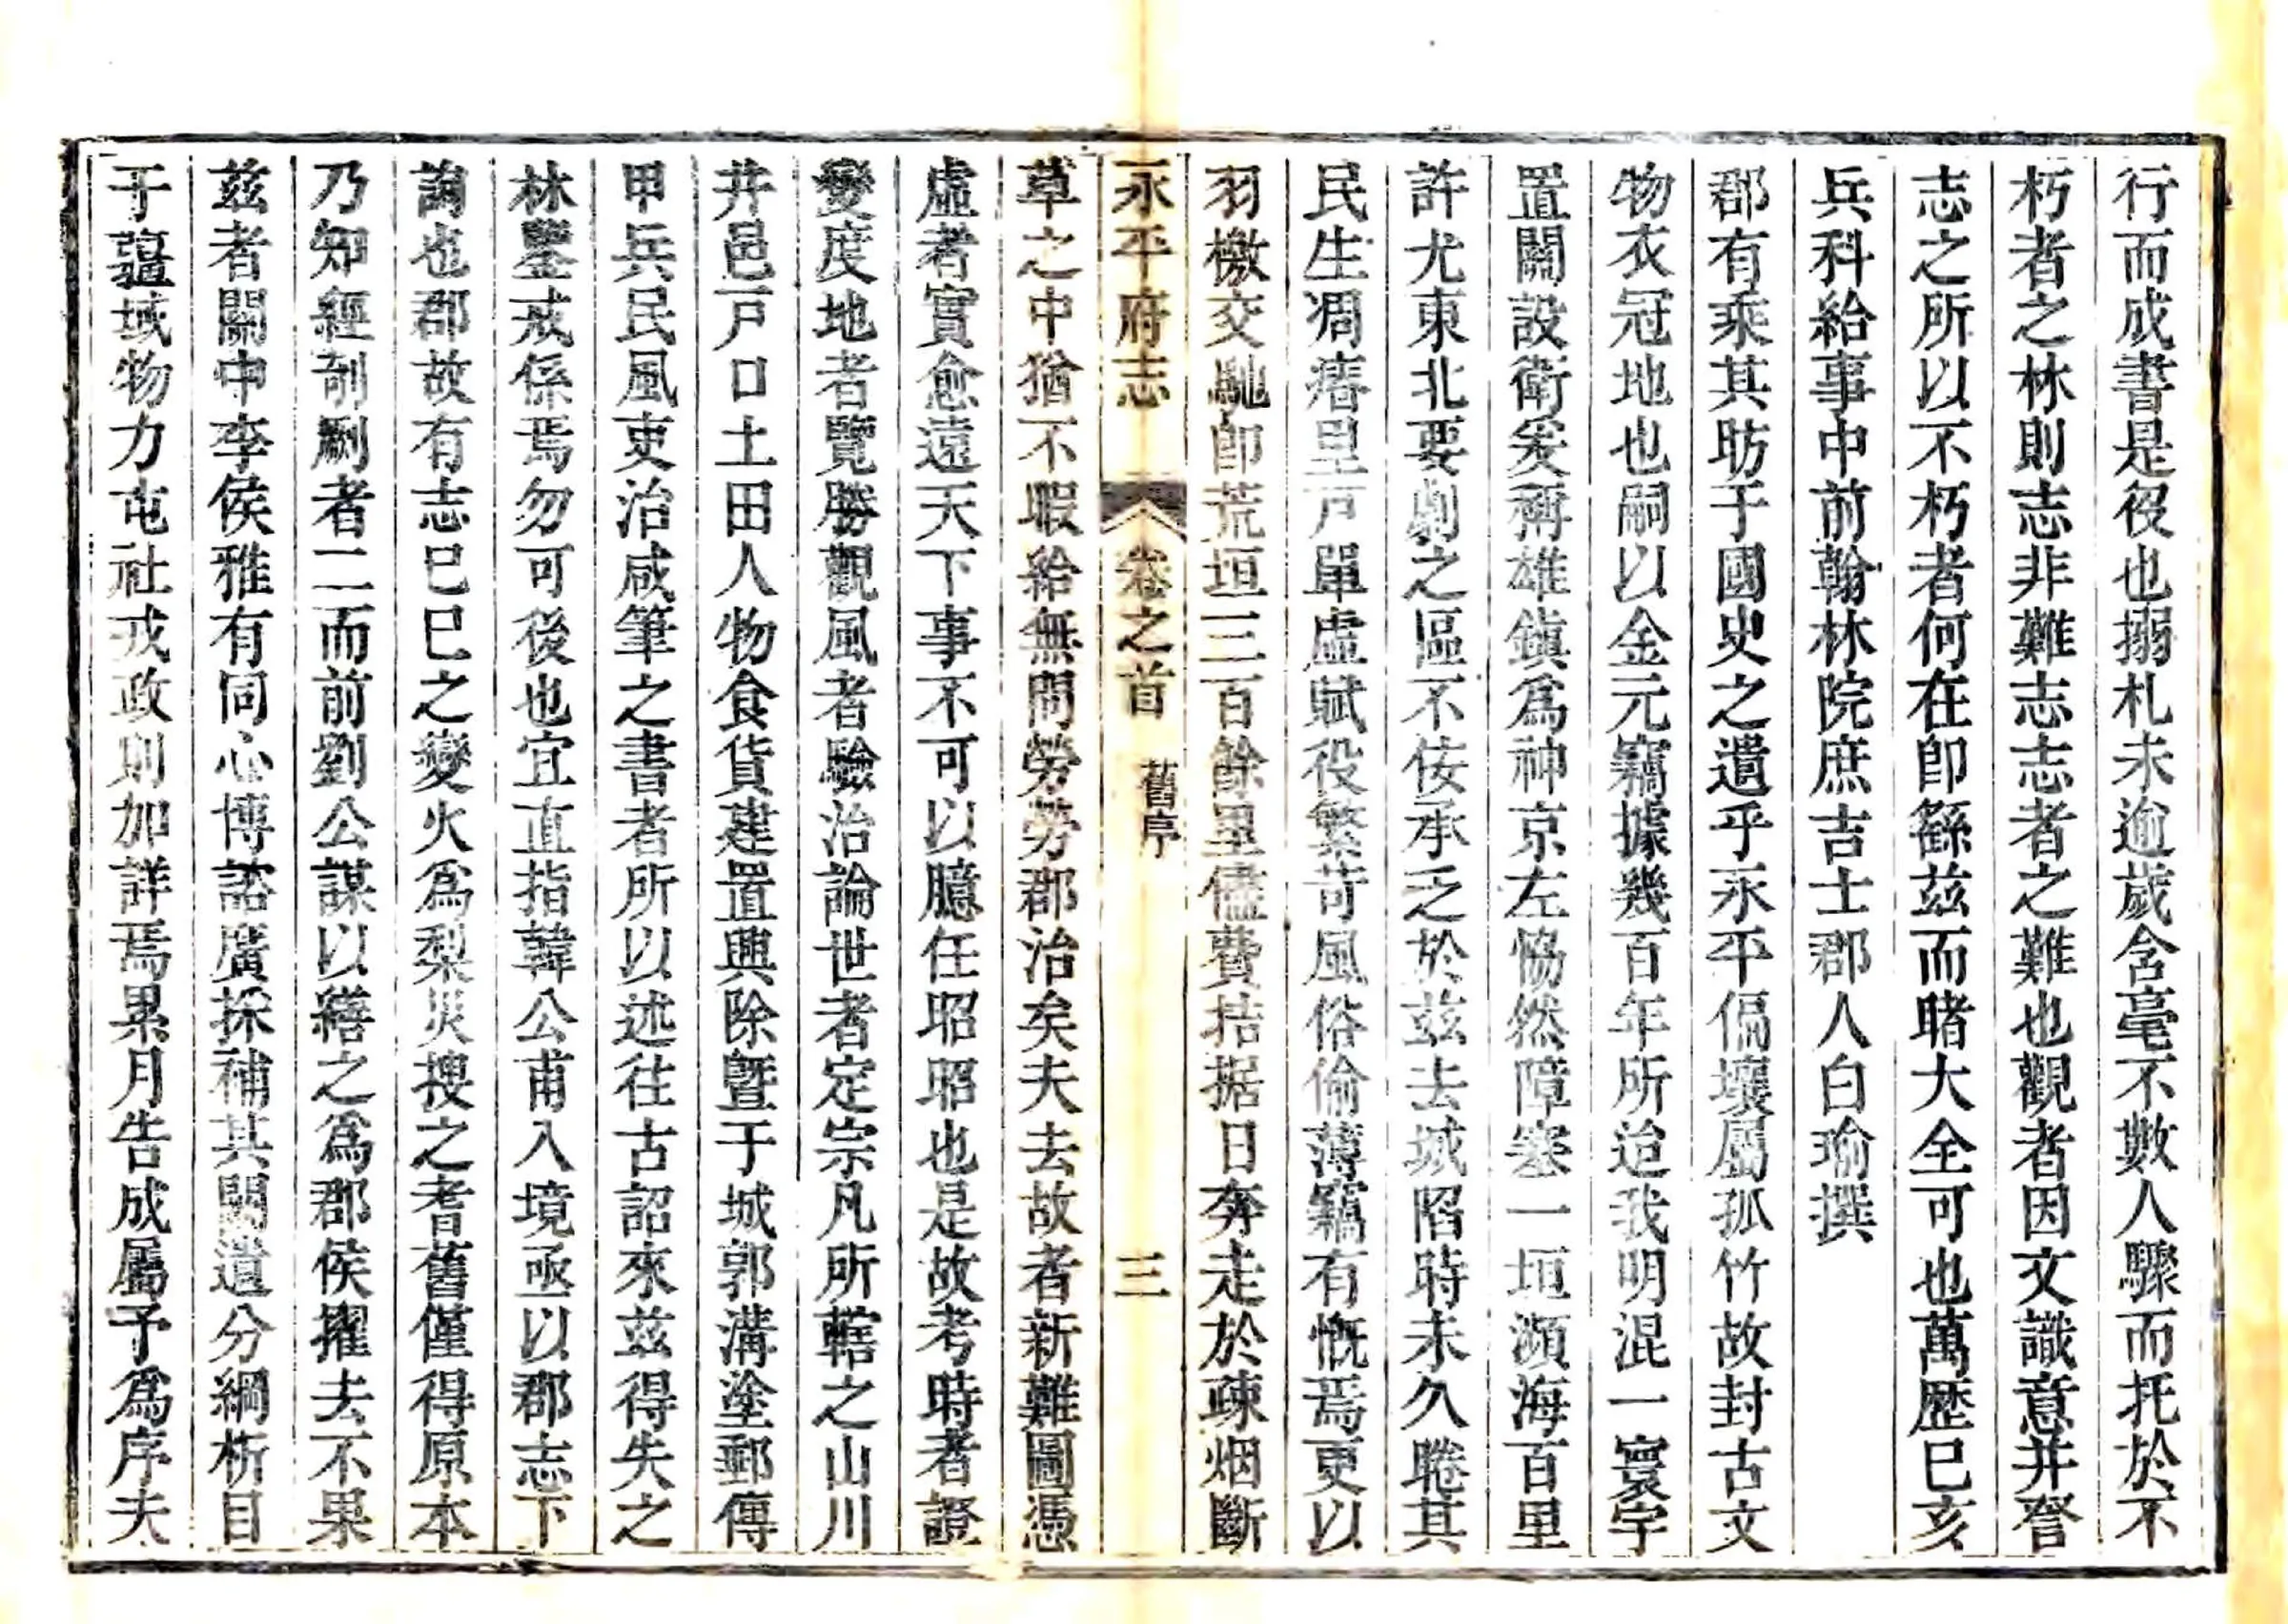 行而成書是役也搦札未逾歲含毫不數人驟而托於不
朽者之林則志非難志志者之難也觀者因文識意并詧
志之所以不朽者何在卽繇茲而睹大全可也萬歷巳亥
兵科給事中前翰林院庶吉士郡人白瑜撰
郡有乘其昉于國史之遺乎永平偏壤屬孤竹故封古文
物衣冠地也嗣以金元竊據幾百年所迨我明混一寰宇
置關設衛爰稱雄鎭爲神京左恊然障塞一垣瀕海百里
許尤東北要劇之區不侫承乏於茲去城陷時未久睠其
民生凋瘠里戸單虛賦役繁苛風俗偷薄竊有慨焉更以
羽檄交馳卽荒垣三百餘里儘費拮据日奔走於疎烟斷
永平府志 卷之首 舊序 三
草之中猶不暇給無問勞勞郡治矣夫去故者新難圖憑
虛者實愈遠天下事不可以臆任昭昭也是故考時者證
變度地者覽勝觀風者驗治論世者定宗凡所轄之山川
井邑戸口土田人物食貨建置興除曁于城郭溝塗郵傳
甲兵民風吏治咸筆之書者所以述往古詔來茲得失之
林鑒戒係焉勿可後也宜直指韓公甫入境亟以郡志下
詢也郡故有志巳巳之變火爲梨災搜之耆舊僅得原本
乃知經剞劂者二而前劉公謀以繕之爲郡侯擢去不果
茲者關中李侯雅有同心博諮廣採補其闕遺分綱析目
于疆域物力屯社戎政則加詳焉累月告成屬予爲序夫